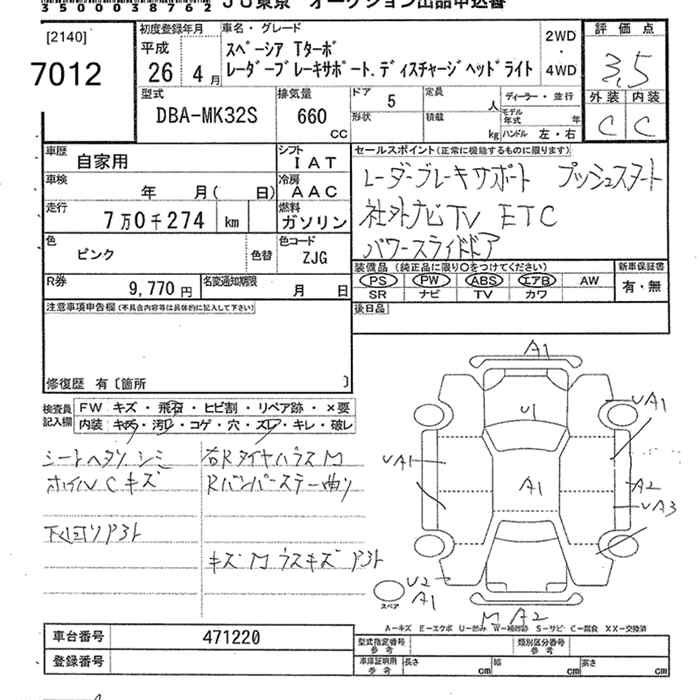 35000038762
JU東京 オークション出品申込書
[2140]
7012
初度登録年月
平成
26年 4月
車名・グレード
スペーシア Tターボ
レーダーブレーキサポート.ディスチャージヘッドライト
2WD
・
4WD
評価点
3.5
外装 内装
C C
型式
DBA-MK32S
排気量
660
CC
ドア 5
形状
定員 人
積載 kg
ディーラー・並行
モデル年式 年
ハンドル 左・右
車歴
自家用
シフト
IAT
車検
年 月( 日)
冷房
AAC
走行
7万0千274 km
燃料
ガソリン
色
ピンク
色替
色コード
ZJG
R券
9,770円
名変通知期限
月 日
セールスポイント(正常に機能するものに限ります)
レーダーブレーキサポート プッシュスタート
社外ナビTV ETC
パワースライドドア
装備品 (純正品に限り○をつけてください)
PS PW ABS エアB AW
SR ナビ TV カワ
新車保証書
有・無
後日品
注意事項申告欄(不具合内容等は具体的に記入して下さい)
修復歴 有〔箇所 〕
検査員記入欄
FW キズ・飛石・ヒビ割・リペア跡・×要
内装 キズ・汚レ・コゲ・穴・スレ・キレ・破レ
シートヘタリ シミ
ホイルCキズ
下回リ アクト
右RタイヤハウスM
Rバンパーステー曲り
キズM ウスキズ
A1
U1
UA1
UA1
A1
A2
UA3
U2
A1
M A2
スペア
A-キズ E-エクボ U-凹み W-補修跡 S-サビ C-腐食 XX-交換済
車台番号
471220
登録番号
型式指定番号
参考
類別区分番号
参考
車庫証明用
参考
長さ cm
幅 cm
高さ cm